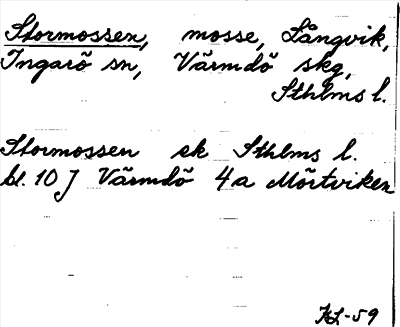 Stormossen, mosse, Långvik,
Ingarö sn, Värmdö skg,
Sthlms l.
Stormossen ek Sthlms l.
bl. 10 J Värmdö 4a Mörtviken
KL-59